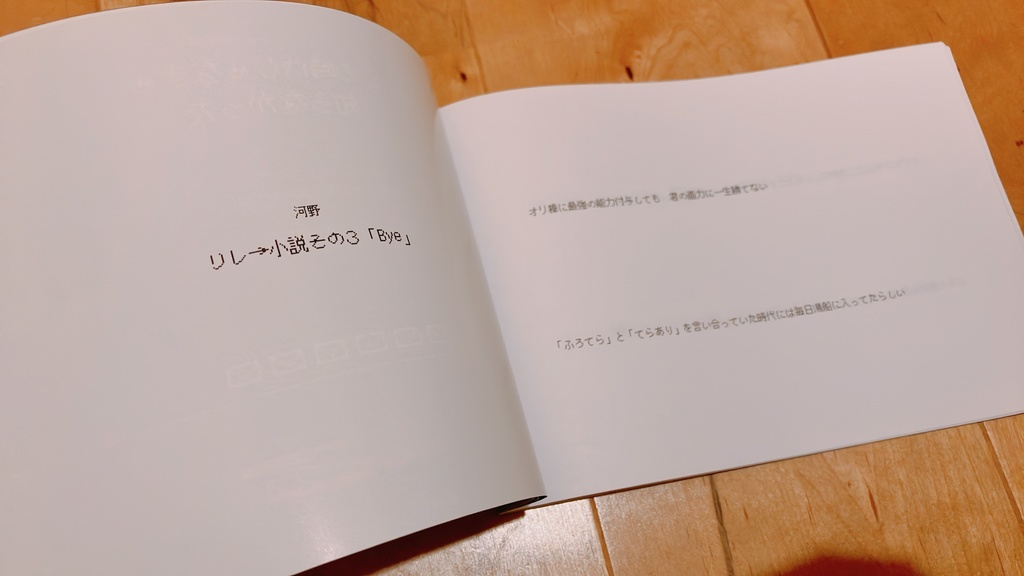 河野
リレー小説その3「Bye」
オリ棒に最強の能力付与しても　君の画力に一生勝てない
「ふろてら」と「てらあり」を言い合っていた時代には毎日湯船に入ってたらしい